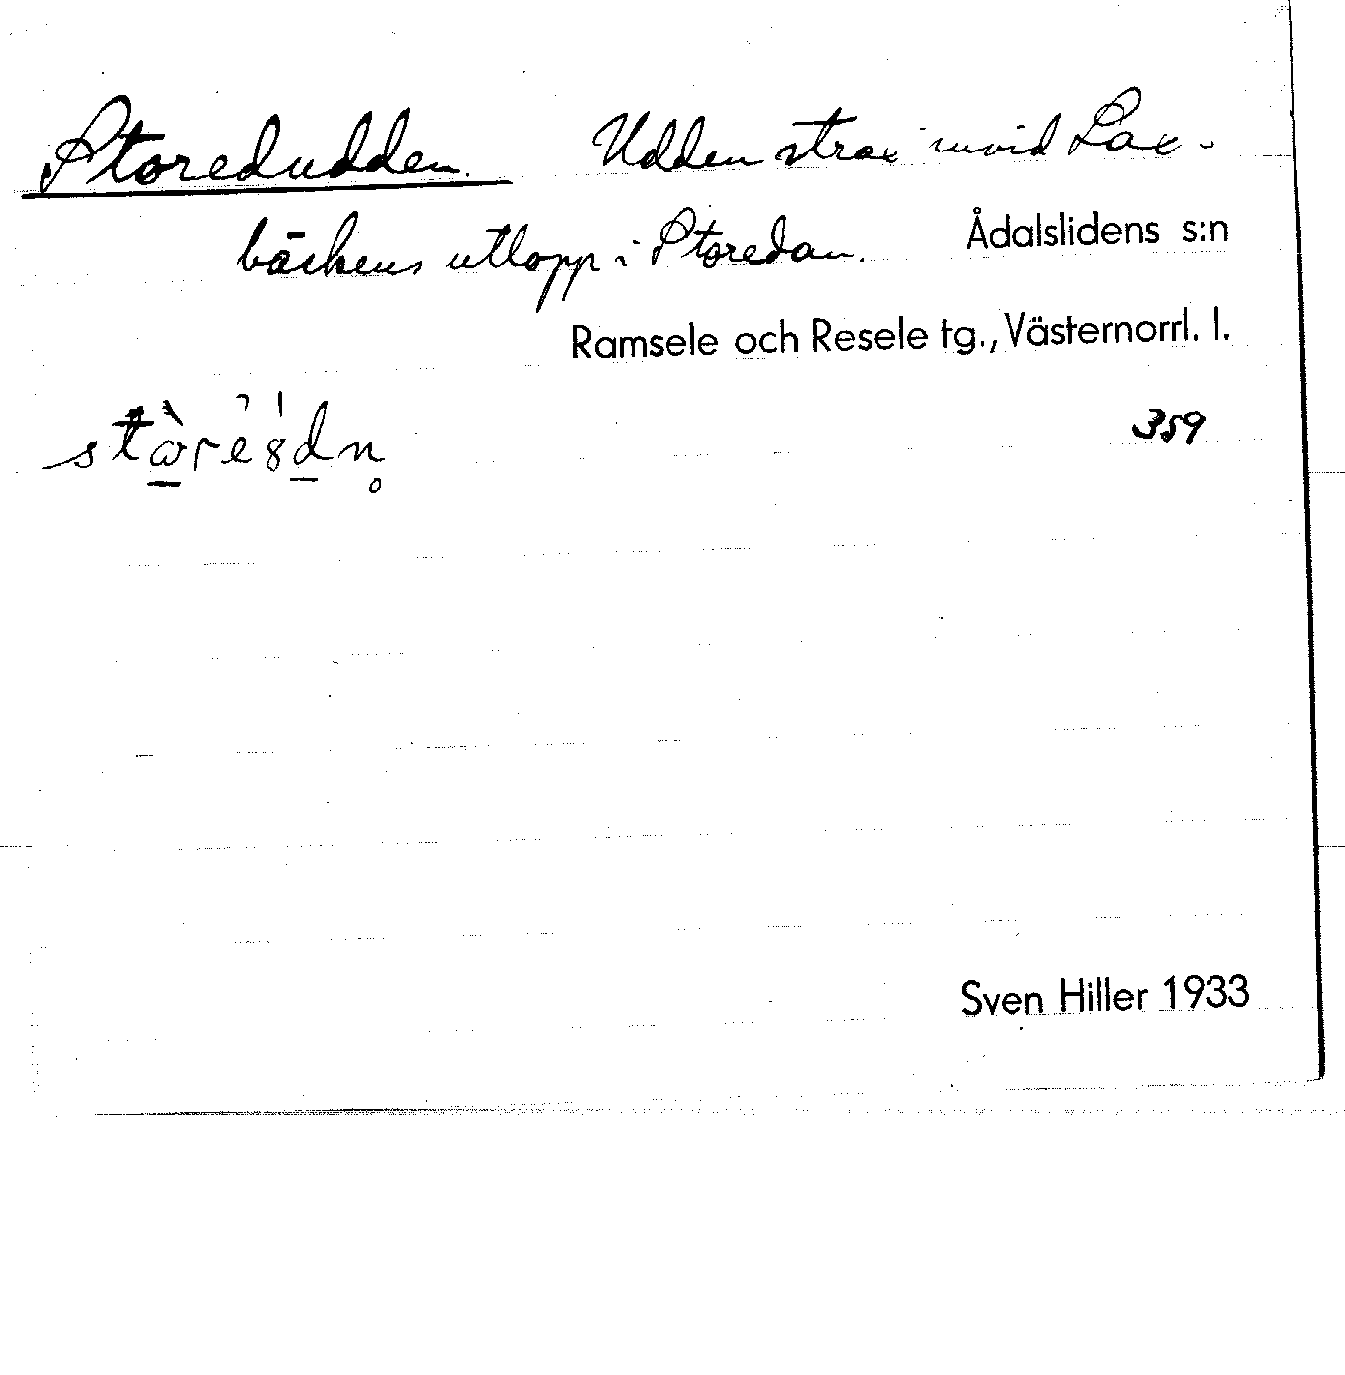 Storedudden. Udden strax invid Lax-
bäckens utlopp i Storedan. Ådalslidens s:n
Ramsele och Resele tg., Västernorrl. l.
359
Sven Hiller 1933